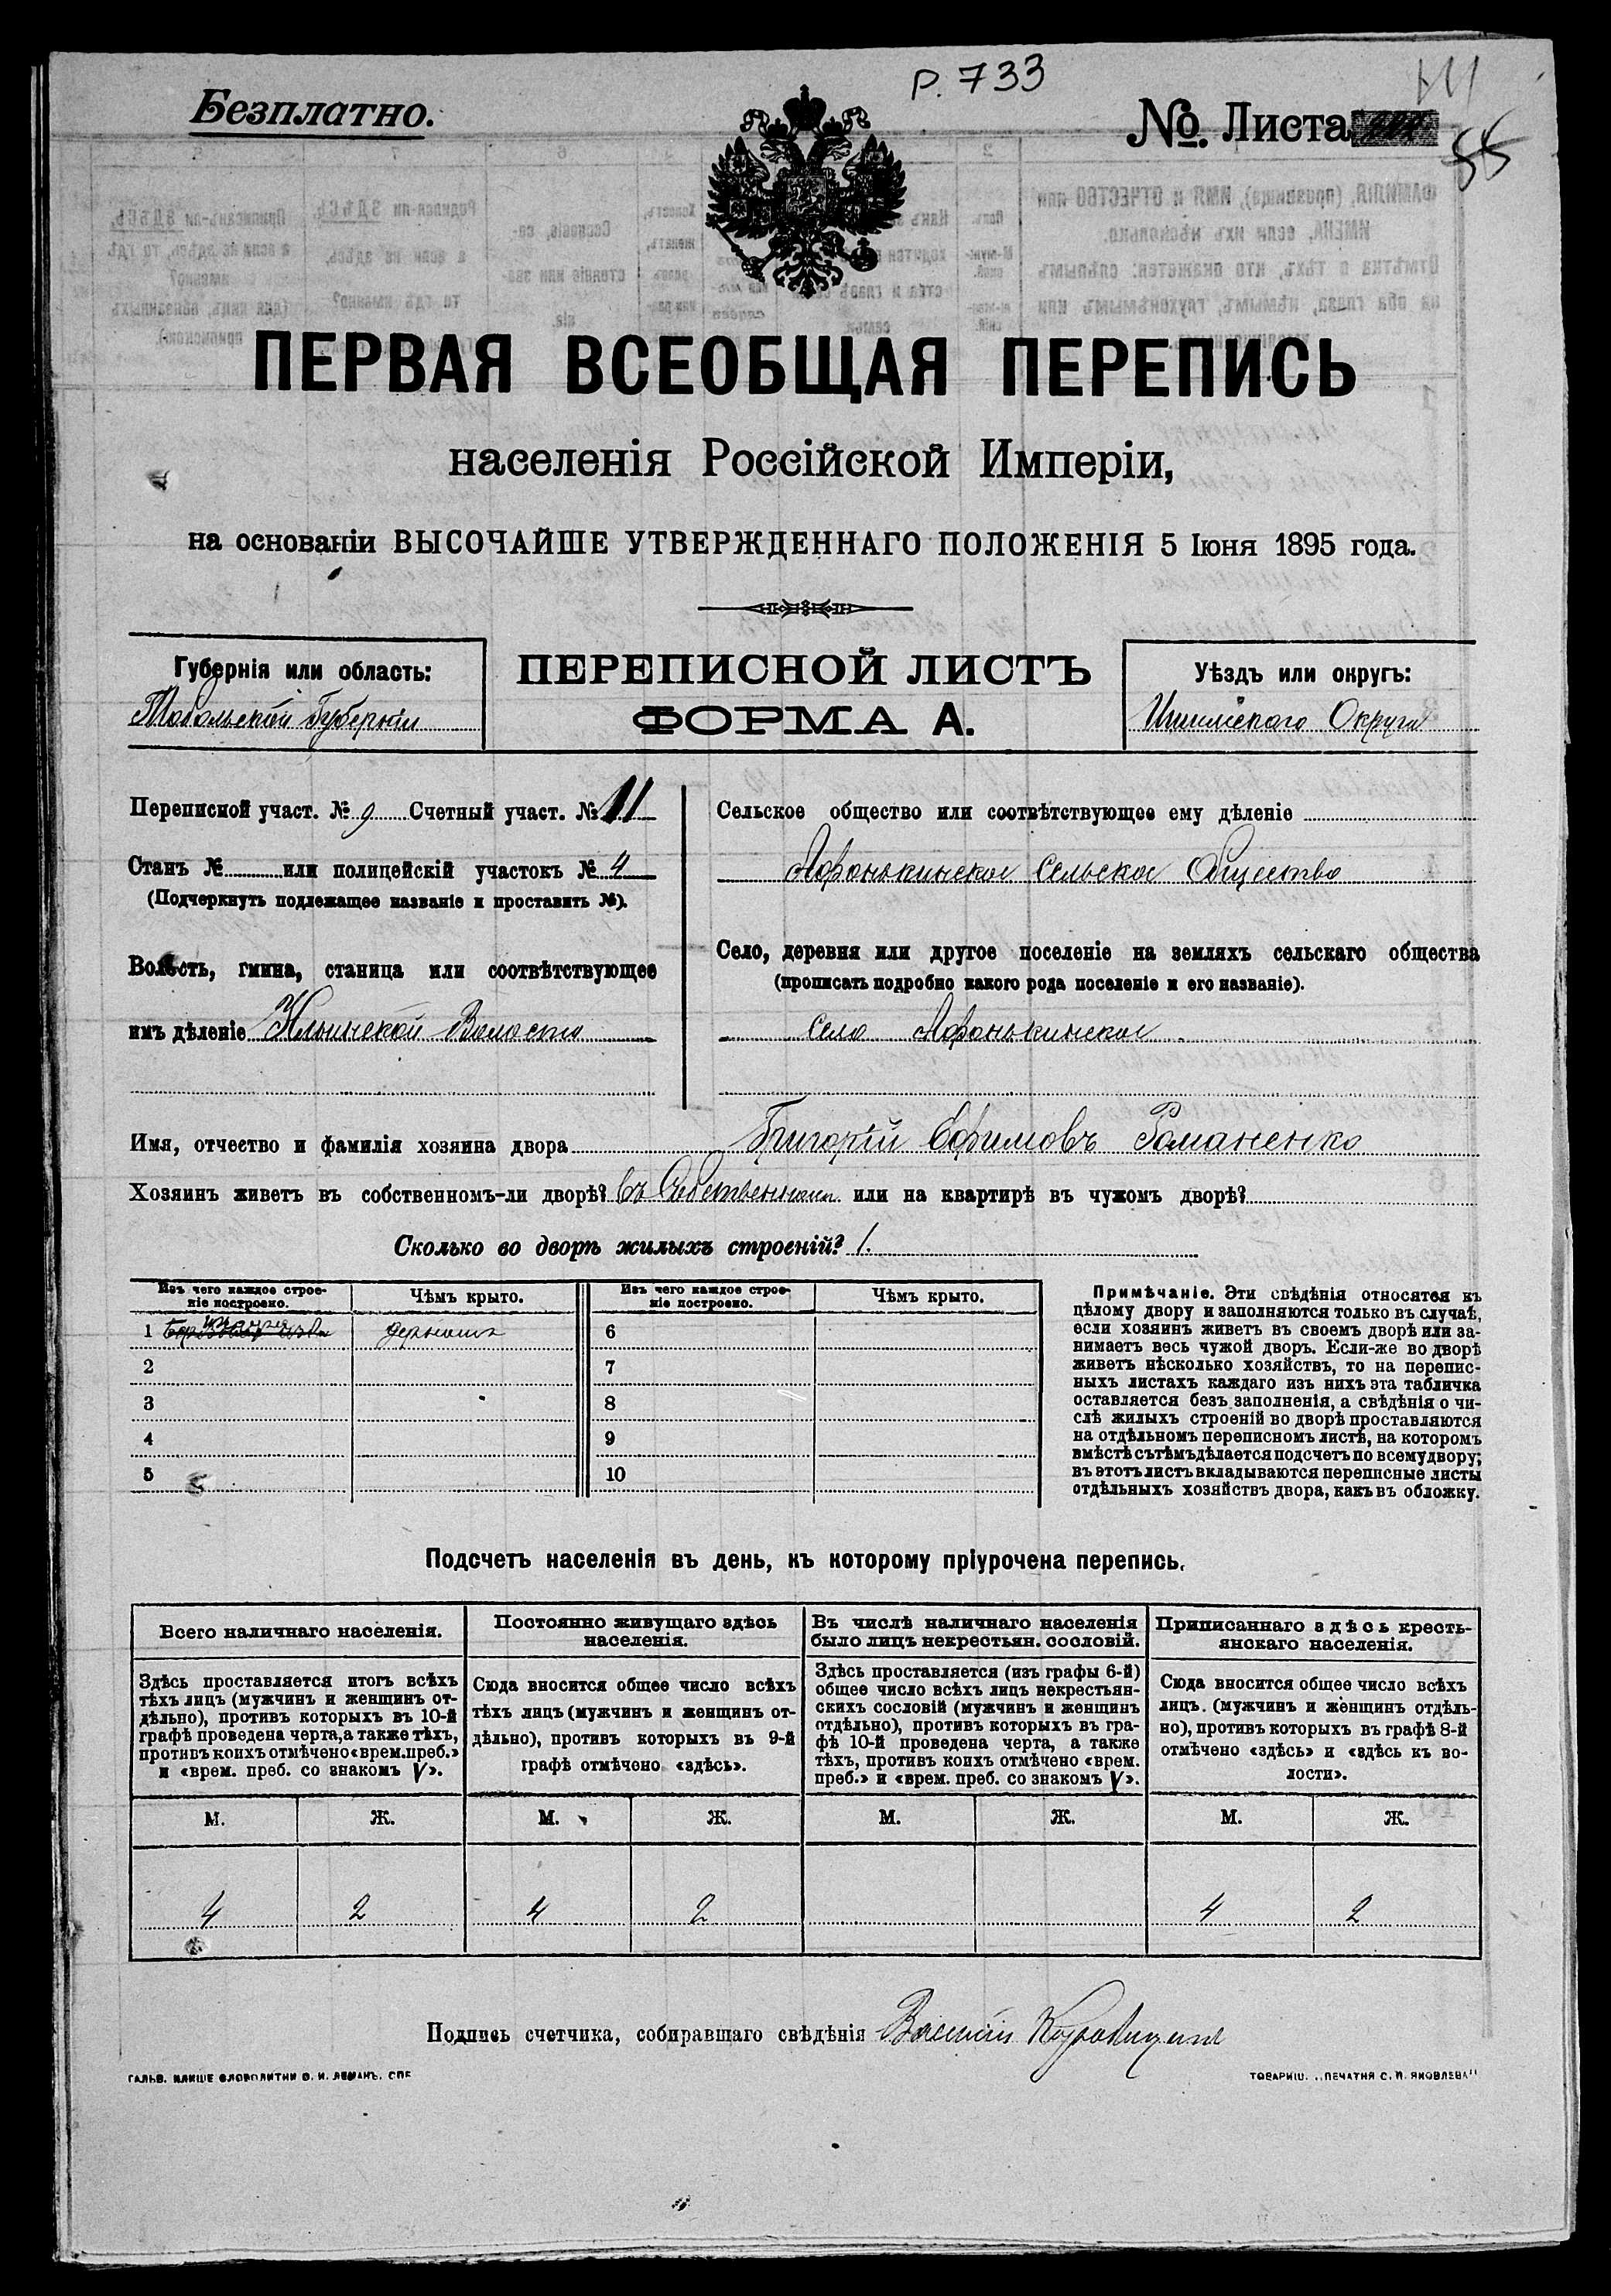 Р. 733
Безплатно.
№ Листа
55
ПЕРВАЯ ВСЕОБЩАЯ ПЕРЕПИСЬ
населенія Россійской Имперіи,
на основаніи ВЫСОЧАЙШЕ УТВЕРЖДЕННАГО ПОЛОЖЕНІЯ 5 Іюня 1895 года.
Губернія или область:
Тобольской Губерніи
ПЕРЕПИСНОЙ ЛИСТЪ
ФОРМА А.
Уѣздъ или округъ:
Ишимскаго Округа
Переписной участ. № 9 Счетный участ. № 11
Станъ № или полицейскій участокъ № 4
(Подчеркнуть подлежащее названіе и проставить №).
Волость, гмина, станица или соотвѣтствующее
имъ дѣленіе Ильинской Волости
Сельское общество или соотвѣтствующее ему дѣленіе
Афонькинское Сельское Общество
Село, деревня или другое поселеніе на земляхъ сельскаго общества
(прописать подробно какого рода поселеніе и его названіе).
Село Афонькинское
Имя, отчество и фамилія хозяина двора Григорій Ефимовъ Романенко
Хозяинъ живетъ въ собственномъ-ли дворѣ? Въ Собственномъ или на квартирѣ въ чужомъ дворѣ?
Сколько во дворѣ жилыхъ строеній? 1.
Изъ чего каждое строе-
ніе построено.
Чѣмъ крыто.
Изъ чего каждое строе-
ніе построено.
Чѣмъ крыто.
1 дерномъ 6
2 7
3 8
4 9
5 10
Примѣчаніе. Эти свѣдѣнія относятся къ
цѣлому двору и заполняются только въ случаѣ,
если хозяинъ живетъ въ своемъ дворѣ или за-
нимаетъ весь чужой дворъ. Если-же во дворѣ
живетъ нѣсколько хозяйствъ, то на перепис-
ныхъ листахъ каждаго изъ нихъ эта табличка
оставляется безъ заполненія, а свѣдѣнія о чи-
слѣ жилыхъ строеній во дворѣ проставляются
на отдѣльномъ переписномъ листѣ, на которомъ
вмѣстѣ съ тѣмъ дѣлается подсчетъ по всему двору;
въ этотъ листъ вкладываются переписные листы
отдѣльныхъ хозяйствъ двора, какъ въ обложку.
Подсчетъ населенія въ день, къ которому пріурочена перепись.
Всего наличнаго населенія.
Здѣсь проставляется итогъ всѣхъ
тѣхъ лицъ (мужчинъ и женщинъ от-
дѣльно), противъ которыхъ въ 10-й
графѣ проведена черта, а также тѣхъ,
противъ коихъ отмѣчено «врем. преб.»
и «врем. преб. со знакомъ V».
Постоянно живущаго здѣсь
населенія.
Сюда вносится общее число всѣхъ
тѣхъ лицъ (мужчинъ и женщинъ от-
дѣльно), противъ которыхъ въ 9-й
графѣ отмѣчено «здѣсь».
Въ числѣ наличнаго населенія
было лицъ некрестьян. сословій.
Здѣсь проставляется (изъ графы 6-й)
общее число всѣхъ лицъ некрестьян-
скихъ сословій (мужчинъ и женщинъ
отдѣльно), противъ которыхъ въ гра-
фѣ 10-й проведена черта, а также
тѣхъ, противъ коихъ отмѣчено «врем.
преб.» и «врем. преб. со знакомъ V».
Приписаннаго здѣсь кресть-
янскаго населенія.
Сюда вносится общее число всѣхъ
лицъ. (мужчинъ и женщинъ отдѣль-
но), противъ которыхъ въ графѣ 8-й
отмѣчено «здѣсь» и «здѣсь къ во-
лости».
М. Ж. М. Ж. М. Ж. М. Ж.
4 2 4 2 4 2
Подпись счетчика, собиравшаго свѣдѣнія Василій
ГАЛЬВ. КЛИШЕ СЛОВОЛИТНИ О. И. ЛЕМАНЪ. СПБ
ТОВАРИЩ. „ПЕЧАТНЯ С. П. ЯКОВЛЕВА"